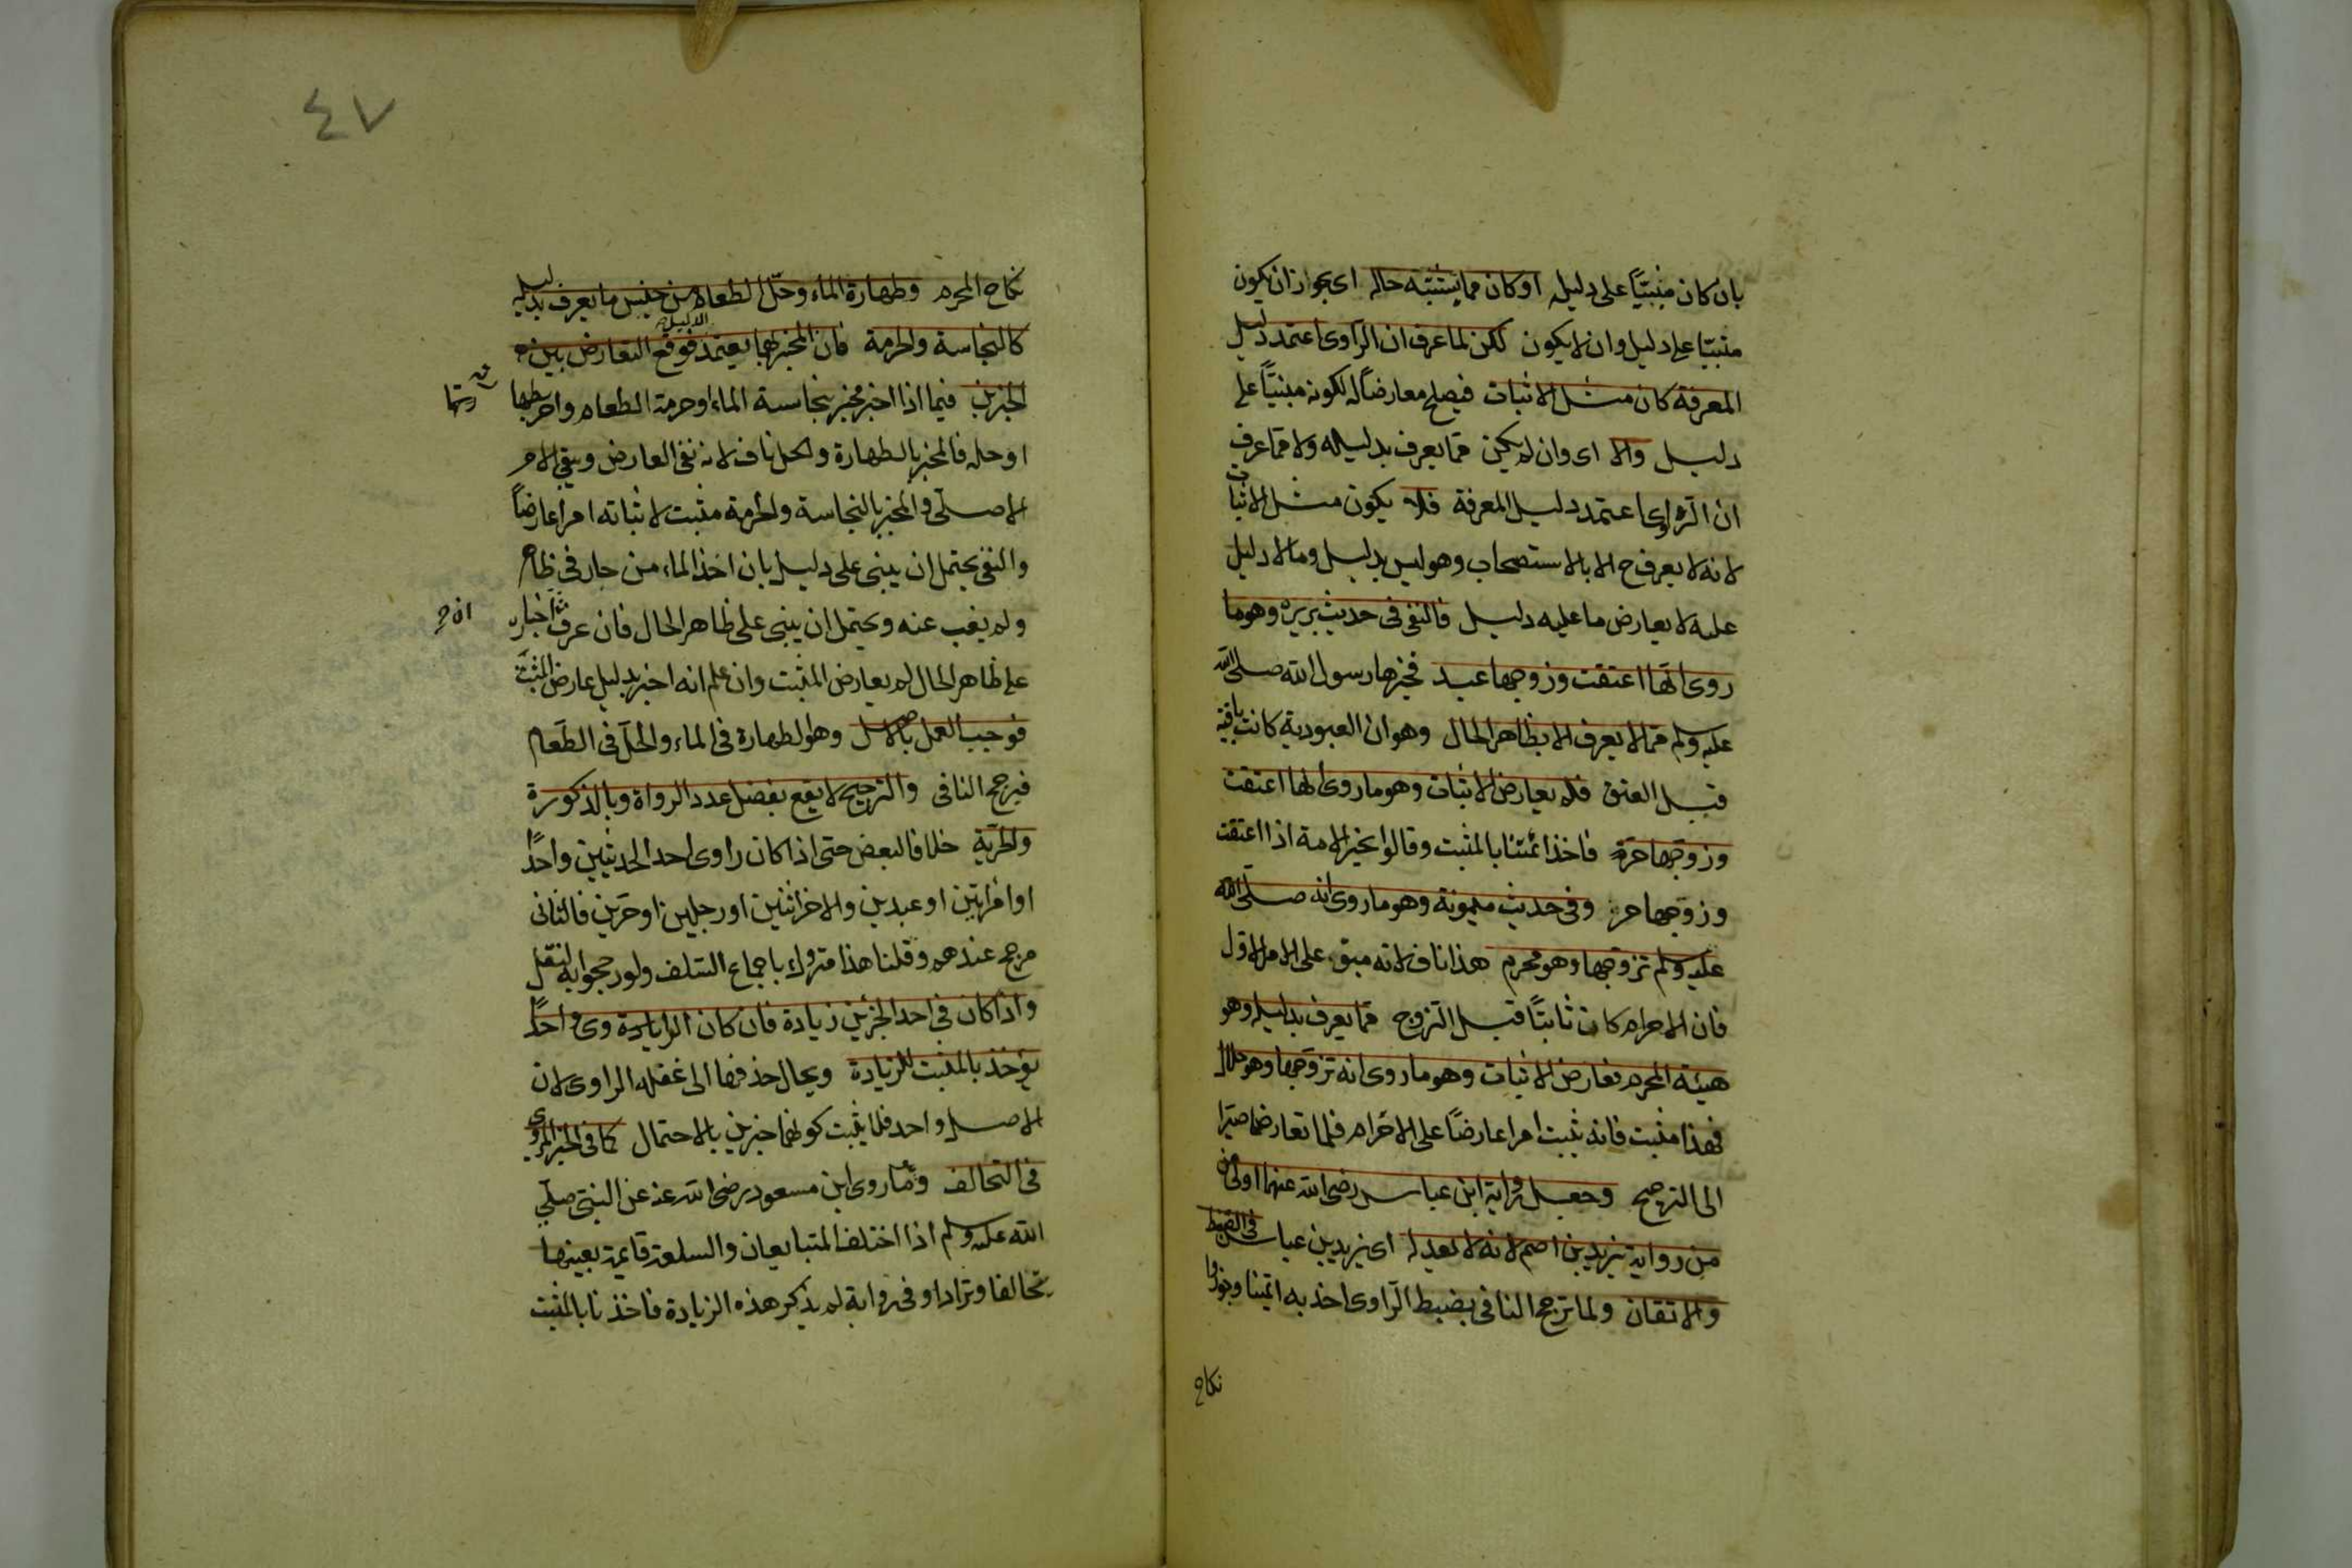 بان كان مبنيًا على دليل او كان مما يشتبه حاله اى بجواز ان يكون
مبنيا على دليل وان لا يكون لكن لما عرف ان الراوى اعتمد دليل
المعرفة كان مثل الاثبات فيصلح معارضًا له لكونه مبنيًا على
دليل والا اى وان لم يكن مما يعرف بدليله ولا مما عرف
ان الراوى اعتمد دليل المعرفة فلا يكون مثل الاثبات
لانه لا يعرف ح الا بالاستصحاب وهو ليس بدليل وما لا دليل
عليه لا يعارض ما عليه دليل فالنفى فى حديث بريرة وهو ما
روى انها اعتقت وزوجها عبد فخيرها رسول الله صلى الله
عليه وسلم مما لا يعرف الا بظاهر الحال وهو ان العبودية كانت باقية
قبل العتق فلم يعارض الاثبات وهو ما روى انها اعتقت
وزوجها حر فاخذ ائمتنا بالمثبت وقالوا بخير الامة اذا اعتقت
وزوجها حر وفى حديث ميمونة وهو ما روى انه صلى الله
عليه وسلم تزوجها وهو محرم هذا ناف لانه مبق على الامر الاول
فان الاحرام كان ثابتًا قبل التزوج مما يعرف بدليله وهو
هيئة المحرم فعارض الاثبات وهو ما روى انه تزوجها وهو حلال
فهذا مثبت فانه يثبت امرا عارضًا على الاحرام فلما تعارضا صيرا
الى الترجيح وجعل رواية ابن عباس رضى الله عنهما اولى من
من رواية يزيد بن اصم لانه لا يعدله اى يزيد بن عباس فى الضبط
والاتقان ولما ترجح النافى بضبط الراوى اخذ به ائمتنا وجوزوا
نكاح
٤٧
نكاح المحرم وطهارة الماء وحل الطعام من جنس ما يعرف بدليله
كالنجاسة والحرمة فان المخبر بهما يعتمد الدليل فوقع التعارض بين
الخبرين فيما اذا اخبر مخبر بنجاسة الماء او حرمة الطعام واخر بطها
رتها
او حله فالمخبر بالطهارة والحل ناف لانه نفى العارض ويبقى الامر
الاصلى والمخبر بالنجاسة والحرمة مثبت لاثباته امرا عارضًا
والنفى يحتمل ان يبنى على دليل بان اخذ الماء من جار فى ظاهر
ولم يغب عنه ويحتمل ان يبنى على ظاهر الحال فان عرف اخباره
على ظاهر الحال لم يعارض المثبت وان علم انه اخبر بدليل عارض المثبت
فوجب العمل بالاصل وهو الطهارة فى الماء والحل فى الطعام
فيرجح النافى والترجيح لا يقع بفضل عدد الرواة وبالذكورة
والحرية خلافا لبعض حتى اذا كان راوى احد الحديثين واحدًا
او امراتين او عبدين والاخر اثنين او رجلين او حرين فالثانى
مرجح عندهم وقلنا هذا متروك باجماع السلف ولو رجحوا به لنقل
واذا كان فى احد الخبرين زيادة فان كان الراوى واحدًا
يؤخذ بالمثبت للزيادة ويحال حذفها الى غفلة الراوى لان
الاصل واحد فلا يثبت كونهما خبرين بالاحتمال كما فى الخبر المروى
فى التحالف وما روى ابن مسعود رضى الله عنه عن النبى صلى
الله عليه وسلم اذا اختلف المتبايعان والسلعة قايمة بعينها
تحالفا وترادا وفى رواية لم يذكر هذه الزيادة فاخذنا بالمثبت